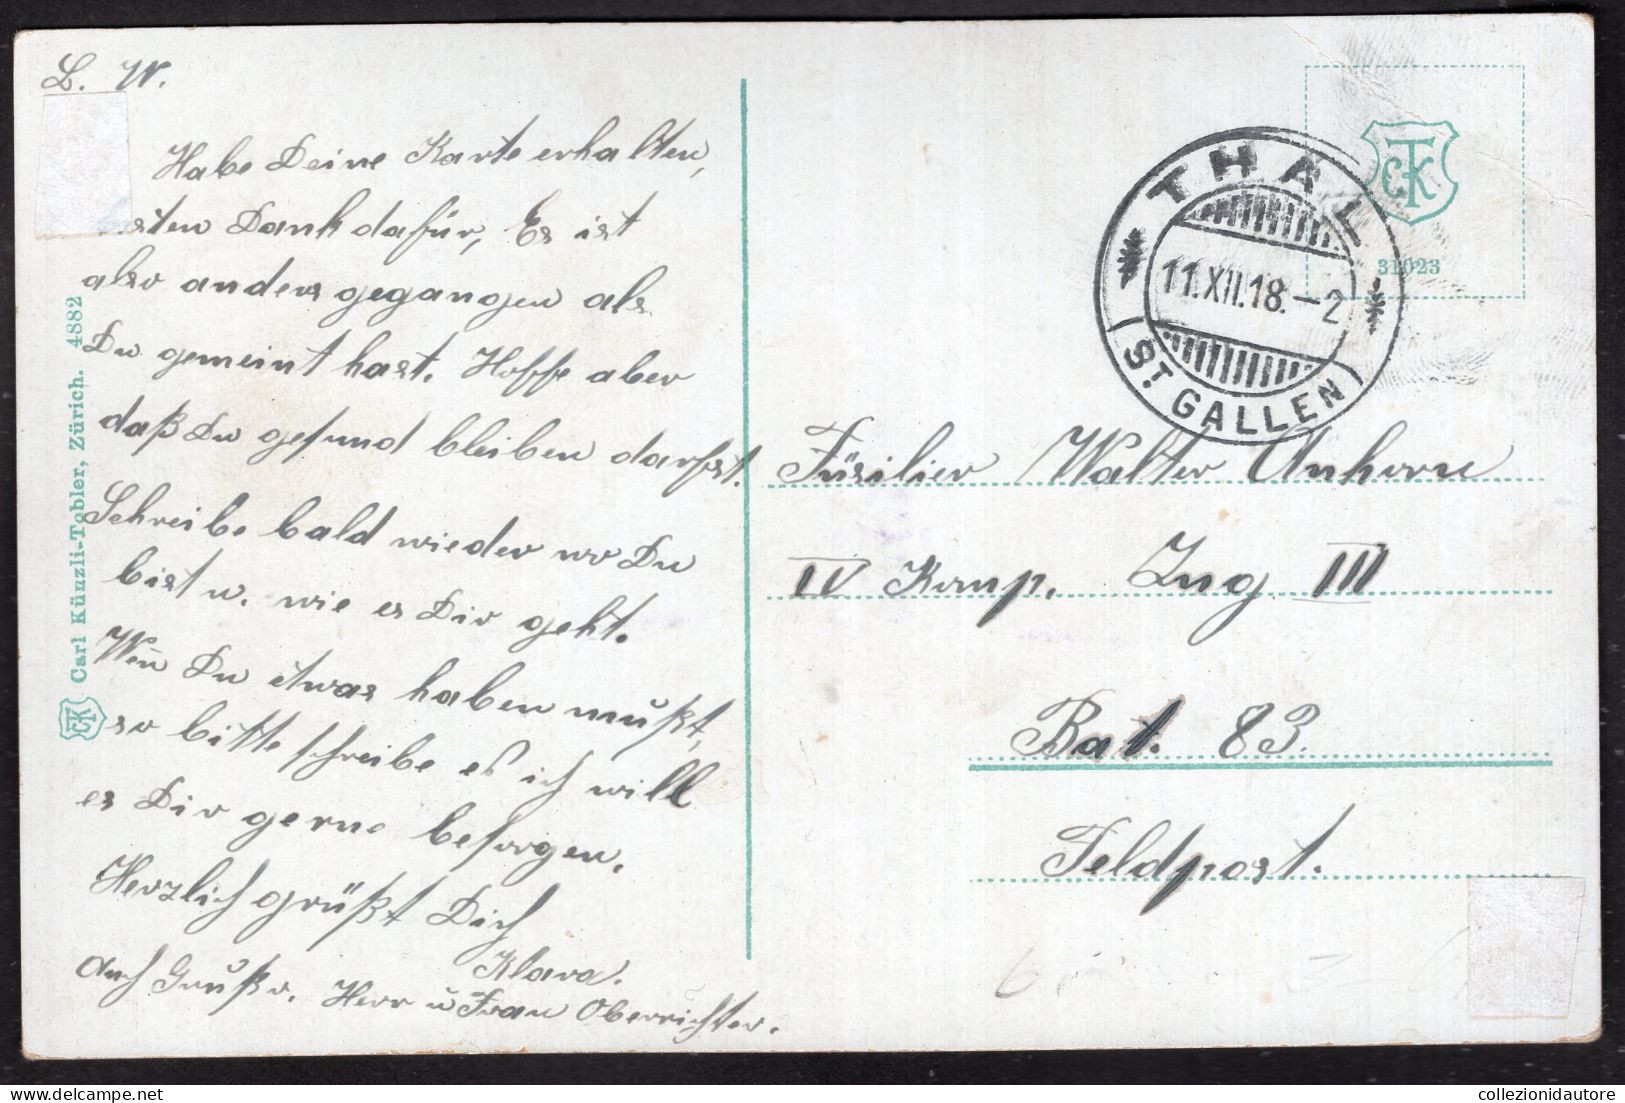 L. W.
Habe Deine Karte erhalten,
Dank dafür, Es ist
also anders gegangen als
Du gemeint hast. Hoffe aber
daß Du gesund bleiben darfst.
Schreibe bald wieder wo Du
bist u. wie es Dir geht.
Wen̅ Du etwas haben mußt,
so bitte schreibe es ich will
es Dir gerne besorgen.
Herzlich grüßt Dich
Klara.
Auch Gruß v. Herr u Frau Oberrichter.
Carl Künzli-Tobler, Zürich. 4882
CTK
THAL
11.XII.18.-2
(ST. GALLEN)
CTK
31023
Füsilier Walter Anhorn
IV Komp. Zug III
Bat. 83.
Feldpost.
collezionidautore